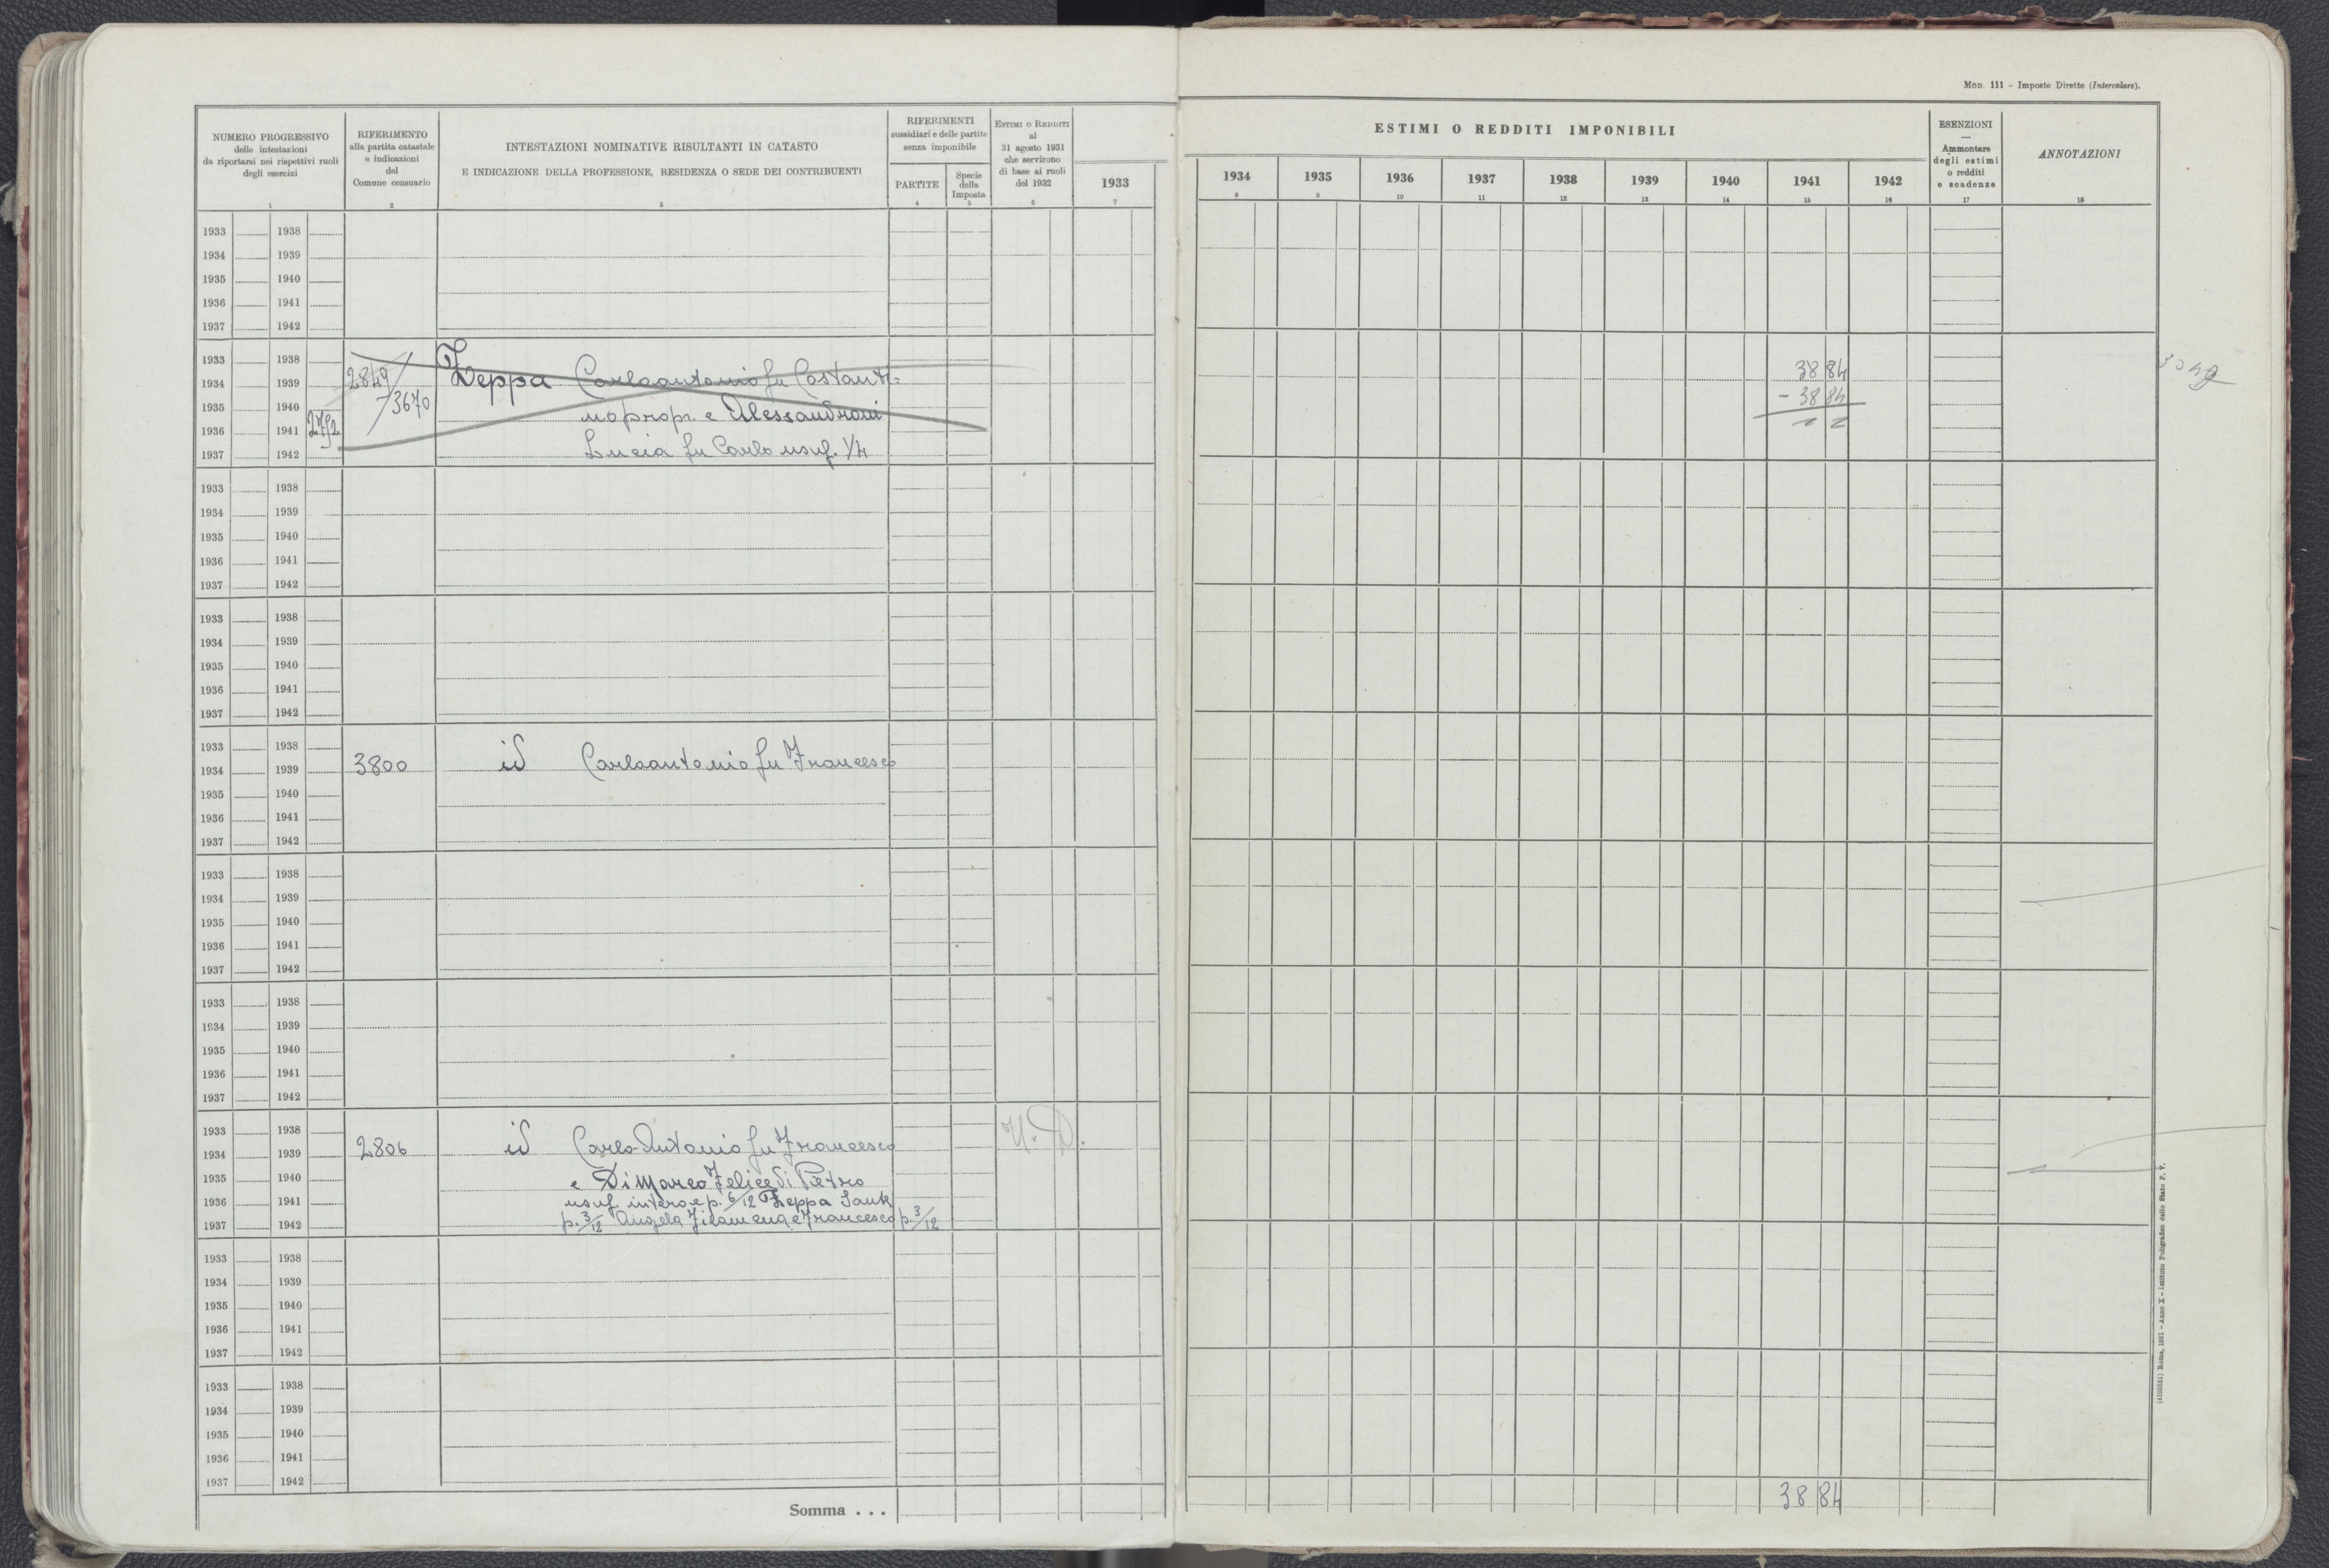 Mod. 111 – Imposte Dirette (Intercalare).
NUMERO PROGRESSIVO
delle intestazioni
da riportarsi nei rispettivi ruoli
degli esercizi
1
RIFERIMENTO
alla partita catastale
e indicazioni
del
Comune censuario
2
INTESTAZIONI NOMINATIVE RISULTANTI IN CATASTO
E INDICAZIONE DELLA PROFESSIONE, RESIDENZA O SEDE DEI CONTRIBUENTI
3
RIFERIMENTI
sussidiari e delle partite
senza imponibile
PARTITE
4
Specie
della
Imposta
5
Estimi o Redditi
al
31 agosto 1931
che servirono
di base ai ruoli
del 1932
6
1933
7
ESTIMI O REDDITI IMPONIBILI
1934 1935 1936 1937 1938 1939 1940 1941 1942
8 9 10 11 12 13 14 15 16
ESENZIONI
—
Ammontare
degli estimi
o redditi
e scadenze
17
ANNOTAZIONI
18
1933 1938
1934 1939
1935 1940
1936 1941
1937 1942
1933 1938
1934 1939 2849 Zeppa Carloantonio fu Costanti= 38 84
1935 1940 3670 no propr. e Alessandroni - 38 84
1936 1941 2792
1937 1942 Lucia fu Carlo usuf. 1/4
1933 1938
1934 1939
1935 1940
1936 1941
1937 1942
1933 1938
1934 1939
1935 1940
1936 1941
1937 1942
1933 1938
1934 1939 3800 id Carloantonio fu Francesco
1935 1940
1936 1941
1937 1942
1933 1938
1934 1939
1935 1940
1936 1941
1937 1942
1933 1938
1934 1939
1935 1940
1936 1941
1937 1942
1933 1938
1934 1939 2806 id Carlo Antonio fu Francesco
1935 1940 e Di Marco Felice di Pietro
1936 1941 usuf. intero e p. 6/12 Zeppa
1937 1942 p. 3/12 Angela Filomena e Francesco p. 3/12
1933 1938
1934 1939
1935 1940
1936 1941
1937 1942
1933 1938
1934 1939
1935 1940
1936 1941
1937 1942
Somma . . . 38 84
(4103521) Roma, 1931 – Anno X – Istituto Poligrafico dello Stato P. V.